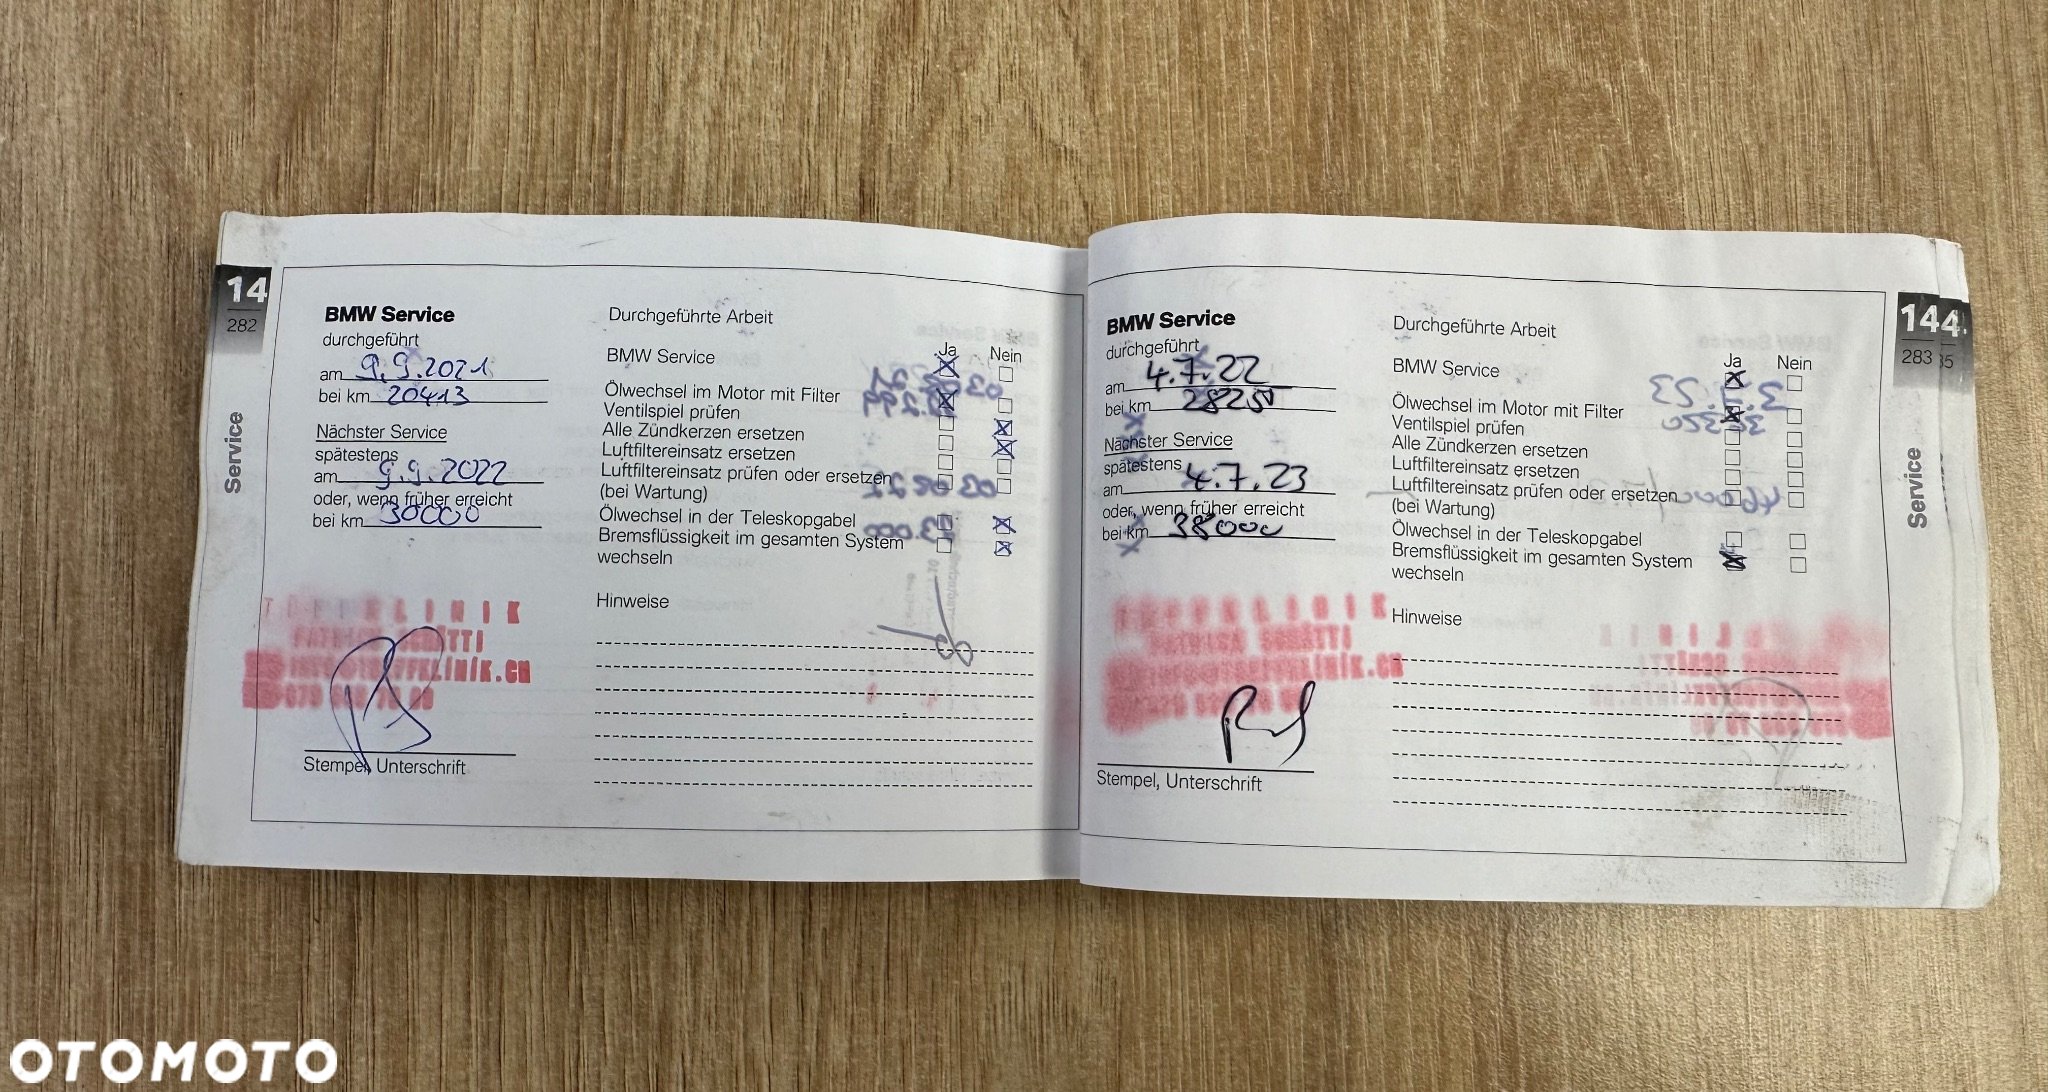 14
282
Service
BMW Service
durchgeführt
am 9.9.2021
bei km 20413
Nächster Service
spätestens
am 9.9.2022
oder, wenn früher erreicht
bei km 30000
KLINIK
Stempel, Unterschrift
Durchgeführte Arbeit
Ja Nein
BMW Service
Ölwechsel im Motor mit Filter
Ventilspiel prüfen
Alle Zündkerzen ersetzen
Luftfiltereinsatz ersetzen
Luftfiltereinsatz prüfen oder ersetzen
(bei Wartung)
Ölwechsel in der Teleskopgabel
Bremsflüssigkeit im gesamten System
wechseln
Hinweise
BMW Service
durchgeführt
am 4.7.22
bei km 28250
Nächster Service
spätestens
am 4.7.23
oder, wenn früher erreicht
bei km 38000
Stempel, Unterschrift
Durchgeführte Arbeit
Ja Nein
BMW Service
Ölwechsel im Motor mit Filter
Ventilspiel prüfen
Alle Zündkerzen ersetzen
Luftfiltereinsatz ersetzen
Luftfiltereinsatz prüfen oder ersetzen
(bei Wartung)
Ölwechsel in der Teleskopgabel
Bremsflüssigkeit im gesamten System
wechseln
Hinweise
14
283
Service
OTOMOTO